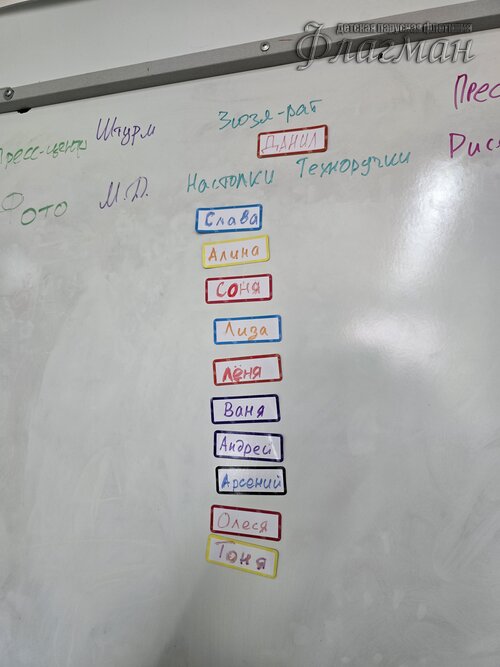 детская парусная флотилия
Флагман
Штурм
Зюзя-рат
ПРЕС
Пресс-центр
ДАНИЛ
Рис
Фото
М.Д.
Настолки
Техноручки
Слава
Алина
Соня
Лиза
Лёня
Ваня
Андрей
Арсений
Олеся
Тоня